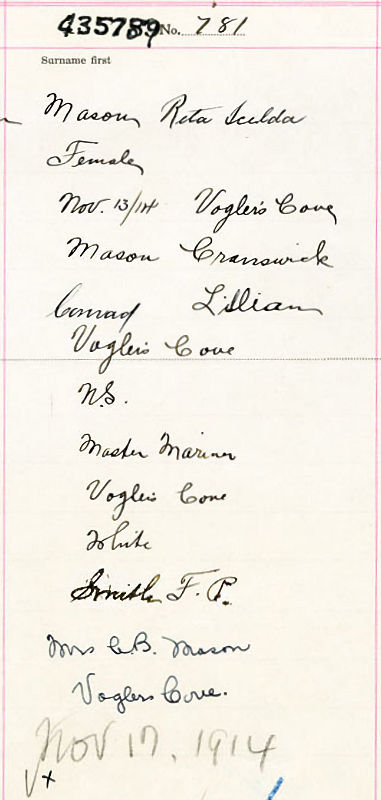 435789 No. 781
Surname first
Mason, Rita
Female
Nov. 13/14 Vogler's Cove
Mason Cranswick
Conrad Lillian
Vogler's Cove
N.S.
Master Mariner
Vogler's Cove
White
Smith F. P.
Mrs C.B. Mason
Voglers Cove.
NOV 17, 1914